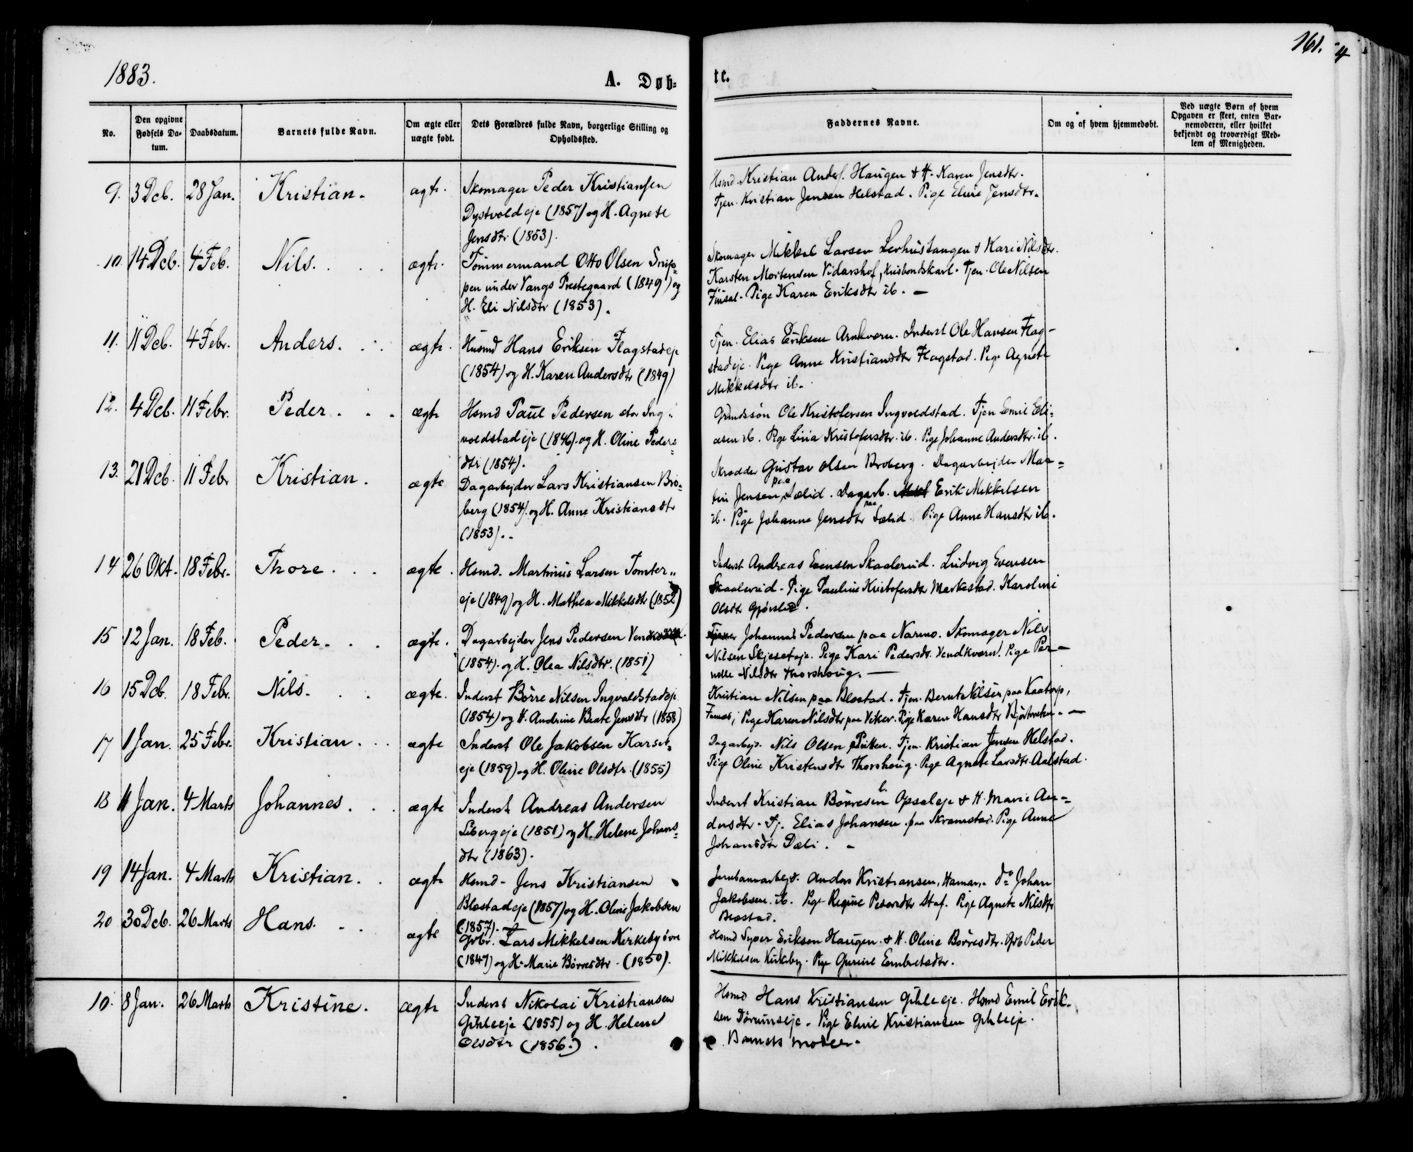 1883.
A. Døb-
te.
161.
4
No.
Den opgivne Fødsels Da-tum.
Daabsdatum.
Barnets fulde Navn.
Om ægte eller uægte født.
Dets Forældres fulde Navn, borgerlige Stilling og Opholdssted.
Faddernes Navne.
Om og af hvem hjemmedøbt.
Ved uægte Børn af hvem Opgaven er skeet, enten Bar-nemoderen, eller hvilket bekjendt og troværdigt Med-lem af Menigheden.
9. 3 Dcb. 28 Jan. Kristian. ægte. Skomager Peder Kristiansen
Dystvoldeje (1857) og H. Agnete
Jensdtr (1853).
Hsmd Kristian Anders. Haugen & H. Karen Jensdtr.
Tjen. Kristian Jensen Helstad. Pige Eline Jensdtr.
10. 14 Dcb. 4 Feb. Nils. ægte. Tømmermand Otto Olsen Snip-
pen under Vangs Prestegaard (1849) og
H. Eli Nilsdtr (1853).
Skomager Mikkel Larsen Lerhustangen & Kari Nilsdtr.
Karsten Mortensen Vidarshof, Tjen. Ole Nilsen
Pige Karen Eriksdtr ib.
11. 11 Dcb. 4 Febr. Anders. ægte. Husmd Hans Eriksen Flagstadeje
(1854) og H. Karen Andersdtr (1849)
Tjen. Elias Eriksen Arnkværn. Inderst Ole Hansen Flag-
stadeje. Pige Anne Kristiansdtr Flagstad. Pige Agnete
Mikkelsdtr ib.
12. 4 Dcb. 11 Febr. Peder. ægte Hsmd Paul Pedersen stor Ing-
voldstadeje (1846) og H. Oline Peders-
dtr (1854).
Ole Kristofersen Ingvoldstad. Tjen Emil Eli-
asen ib. Pige Lina Kristofersdtr ib. Pige Johanne Andersdtr ib.
13. 21 Dcb. 11 Febr Kristian. ægte Dagarbejder Lars Kristiansen Bro-
berg (1854) og H. Anne Kristiansdtr
(1853).
Skrædder Gustav Olsen Broberg. Dagarbejder Mar-
tin Jensen paa Sælid. Dagarb. Erik Mikkelsen
ib. Pige Johanne Jensdtr paa Sælid. Pige Anne Hansdtr ib.
14 26 Okt. 18 Febr. Thore. ægte. Hsmd. Martinus Larsen Tomter-
eje (1849) og H. Mathea Mikkelsdtr (1852)
Inderst Andreas Evensen Skaalerud. Ludvig Evensen
Skaalerud. Pige Pauline Kristofersdtr Markestad. Karoline
Olsdtr
15 12 Jan. 18 Feb. Peder. ægte. Dagarbejder Jens Pedersen
(1854) og H. Olea Nilsdtr. (1851)
Johannes Pedersen paa Narmo. Skomager Nils
Nilsen Skjeseteje. Pige Kari Pedersdtr. Vendkværn. Pige Per-
nelle Nilsdtr Thorshoug.
16 15 Dcb. 18 Febr. Nils. ægte. Inderst Børre Nilsen Ingvaldstadeje
(1854) og H. Andrine Beate Jensdtr (1858)
Kristian Nilsen paa Blæstad. Tjen. Bernt Nilsen paa
Pige Karen Nilsdtr paa Viker. Pige Karen Hansdtr
17 1 Jan. 25 Febr. Kristian. ægte Inderst Ole Jakobsen
eje (1859) og H. Oline Olsdtr. (1855)
Dagarbejd. Nils Olsen Tjen. Kristian Jensen Helstad.
Pige Oline Kristensdtr Thorshoug. Pige Agnete Larsdtr Aalstad.
18 11 Jan. 4 Marts Johannes. ægte Inderst Andreas Andersen
Libergeje (1851) og H. Helene Johans-
dtr (1863).
Inderst Kristian Børresen Opsaleje & H. Marie An-
dersdtr. Tj. Elias Johansen paa Skramstad. Pige Anne
Johansdtr Dæli.
19 14 Jan. 4 Marts Kristian. ægte Hsmd. Jens Kristiansen
Blæstadeje (1857) og H. Oline Jakobsen
(1857).
Jernbanearbejd. Anders Kristiansen, Hamar. Do Johan
Jakobsen ib. Pige Regine Pedersdtr Staf. Pige Agnete Nilsdtr
Blæstad.
20 30 Dcb. 26 Marts Hans. ægte Grbr. Lars Mikkelsen Kirkeby øvre
(1847) og H. Marie Børresdtr. (1850).
Hsmd Syver Eriksen Haugen & H. Oline Børresdtr. Grb Peder
Mikkelsen Kirkeby. Pige Gunild Embretsdtr.
10. 8 Jan. 26 Marts Kristine. ægte Inderst Nikolai Kristiansen
Gihleeje (1855) og H. Helene
Olsdtr (1856.)
Hsmd Hans Kristiansen Gihleeje. Hsmd Emil Erik-
sen Pige Eline Kristiansen Gihleeje.
Barnets Moder.